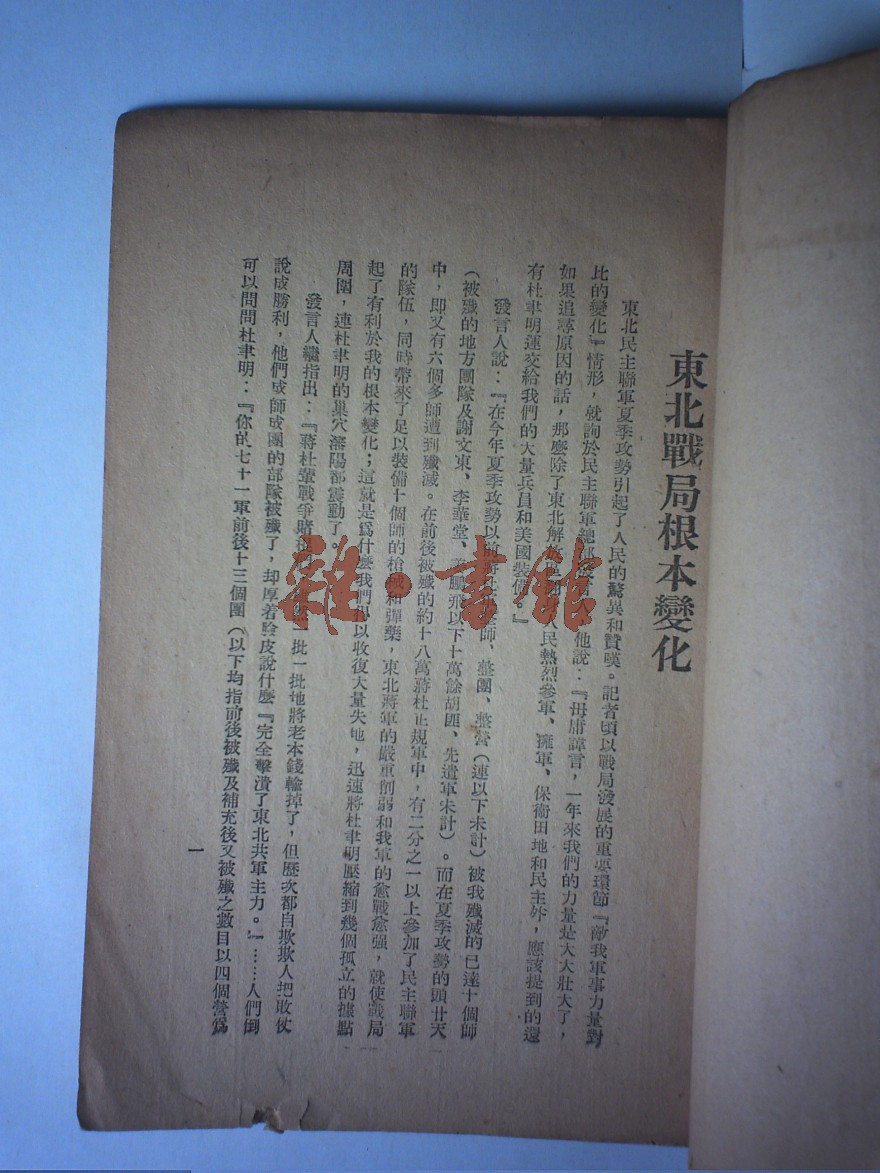 東北戰局根本變化
東北民主聯軍夏季攻勢引起了人民的驚異和贊嘆。記者頃以戰局發展的重要環節『敵我軍事力量對
比的變化』情形，就詢於民主聯軍總部發言人，他說：『毋庸諱言，一年來我們的力量是大大壯大了，
如果追尋原因的話，那麼除了東北解放區 人民熱烈參軍、擁軍、保衞田地和民主外，應該提到的還
有杜聿明運交給我們的大量兵員和美國裝備。』
發言人說：『在今年夏季攻勢以前蔣杜 整師、整團、整營（連以下未計）被我殲滅的已達十個師
（被殲的地方團隊及謝文東、李華堂、姜鵬飛以下十萬餘胡匪、先遣軍未計）。而在夏季攻勢的頭廿天
中，即又有六個多師遭到殲滅。在前後被殲的約十八萬蔣杜正規軍中，有二分之一以上參加了民主聯軍
的隊伍，同時帶來了足以裝備十個師的槍械和彈藥，東北蔣軍的嚴重削弱和我軍的愈戰愈强，就使戰局
起了有利於我的根本變化；這就是爲什麼我們得以收復大量失地，迅速將杜聿明壓縮到幾個孤立的據點
周圍，連杜聿明的巢穴瀋陽都震動了。
發言人繼指出：『蔣杜輩戰爭賭棍 一批一批地將老本錢輸掉了，但歷次都自欺欺人把敗仗
說成勝利，他們成師成團的部隊被殲了，却厚着臉皮說什麽『完全擊潰了東北共軍主力。』……人們倒
可以問問杜聿明：『你的七十一軍前後十三個團（以下均指前後被殲及補充後又被殲之數目以四個營爲
一
雜·書館